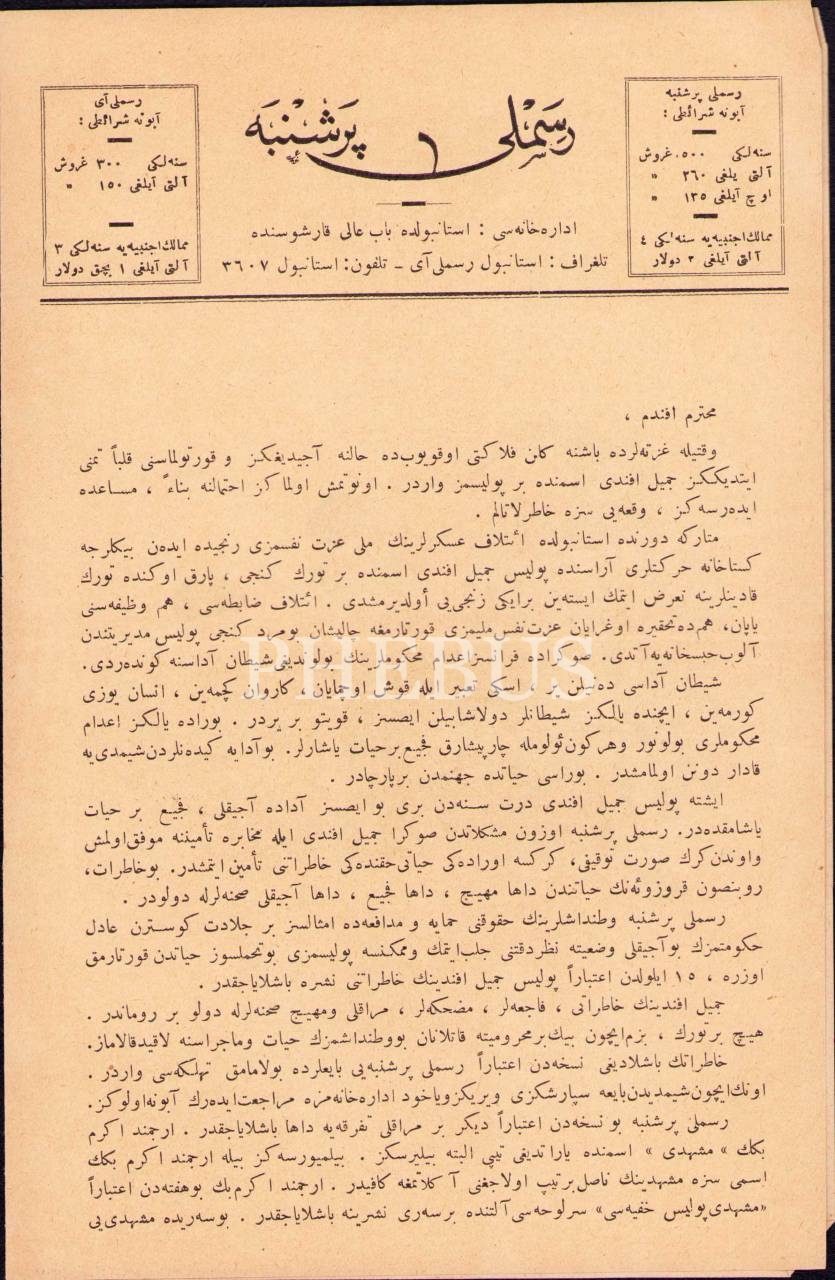 رسملى پرشنبه
آبونه شرائطى :
سنه‌لكى ٥٠٠ غروش
آلتى آيلغى ٢٦٠ »
اوچ آيلغى ١٣٥ »
ممالك اجنبيه‌يه سنه‌لكى ٤
آلتى آيلغى ٢ دولار
رسملى پرشنبه
اداره‌خانه‌سى : استانبولده باب عالى قارشوسنده
تلغراف : استانبول رسملى آى ـ تلفون: استانبول ٣٦٠٧
رسملى آى
آبونه شرائطى :
سنه‌لكى ٣٠٠ غروش
آلتى آيلغى ١٥٠ »
ممالك اجنبيه‌يه سنه‌لكى ٣
آلتى آيلغى ١ بچق دولار
محترم افندم ،
وقتيله غزته‌لرده باشنه كلن فلاكتى اوقويوب‌ده حالنه آجيديغكز و قورتولماسنى قلباً تمنى
ايتديككز جميل افندى اسمنده بر پوليسمز واردر . اونوتمش اولماكز احتمالنه بناءً ، مساعده
ايدرسه‌كز ، وقعه‌يى سزه خاطرلاتالم .
متاركه دورنده استانبولده ائتلاف عسكرلرينك ملى عزت نفسمزى رنجيده ايدەن بيكلرجه
كستاخانه حركتلرى آراسنده پوليس جميل افندى اسمنده بر تورك كنجى ، پارق اوكنده تورك
قادينلرينه تعرض ايتمك ايسته‌ين برايكى زنجى‌يى أولديرمشدى . ائتلاف ضابطه‌سى ، هم وظيفه‌سنى
ياپان، هم‌ده تحقيره اوغرايان عزت‌نفس مليمزى قورتارمغه چاليشان بومرد كنجى پوليس مديريتندن
آلوب حبسخانه‌يه آتدى. صوكراده فرانسز اعدام محكوملرينك بولونديغى شيطان آداسنه كوندەردى.
شيطان آداسى دەنيلن ير ، اسكى تعبير ايله قوش اوچمايان ، كاروان كچمه‌ين ، انسان يوزى
كورمه‌ين ، ايچنده يالكز شيطانلر دولاشابيلن ايصسز ، قويتو بر يردر . بوراده يالكز اعدام
محكوملرى بولونور وهركون ئولومله چارپيشارق فجيع برحيات ياشارلر. بوآدايه كيدەنلردن شيمدى‌يه
قادار دونن اولمامشدر . بوراسى حياتده جهنمدن برپارچادر .
ايشته پوليس جميل افندى درت سنه‌دن برى بو ايصسز آداده آجيقلى ، فجيع بر حيات
ياشامقده‌در. رسملى پرشنبه اوزون مشكلاتدن صوكرا جميل افندى ايله مخابره تأميننه موفق اولمش
واوندن كرك صورت توقيفى، كركسه اوراده‌كى حياتى حقنده‌كى خاطراتنى تأمين ايتمشدر. بوخاطرات،
روبنصون قروزوئه‌نك حياتندن داها مهيج ، داها فجيع ، داها آجيقلى صحنه‌لرله دولودر .
رسملى پرشنبه وطنداشلرينك حقوقنى حمايه و مدافعه‌ده امثالسز بر جلادت كوسترن عادل
حكومتمزك بوآجيقلى وضعيته نظردقتنى جلب‌ايتمك وممكنسه پوليسمزى بوتحملسوز حياتدن قورتارمق
اوزره ، ١٥ ايلولدن اعتباراً پوليس جميل افندينك خاطراتنى نشره باشلاياجقدر .
جميل افندينك خاطراتى ، فاجعه‌لر ، مضحكه‌لر ، مراقلى ومهيج صحنه‌لرله دولو بر روماندر .
هيچ برتورك ، بزم‌ايچون بيك‌بر محروميته قاتلانان بووطنداشمزك حيات وماجراسنه لاقيدقالاماز.
خاطراتك باشلاديغى نسخه‌دن اعتباراً رسملى پرشنبه‌يى بايعلرده بولامامق تهلكه‌سى واردر .
اونك‌ايچون‌شيمديدن بايعه سپارشكزى ويريكز وياخود اداره‌خانه‌مزه مراجعت ايدەرك آبونه اولوكز.
رسملى پرشنبه بو نسخه‌دن اعتباراً ديكر بر مراقلى تفرقه‌يه داها باشلاياجقدر . ارجمند اكرم
بكك » مشهدى » اسمنده ياراتديغى تيپى البته بيليرسكز . بيلميورسه‌كز بيله ارجمند اكرم بكك
اسمى سزه مشهدينك ناصل برتيپ اولاجغنى آكلاتمغه كافيدر . ارجمند اكرم بك بوهفته‌دن اعتباراً
«مشهدى پوليس خفيه‌سى» سرلوحه‌سى آلتنده برسه‌رى نشرينه باشلاياجقدر . بوسه‌ريده مشهدى‌يى
PHEBUS